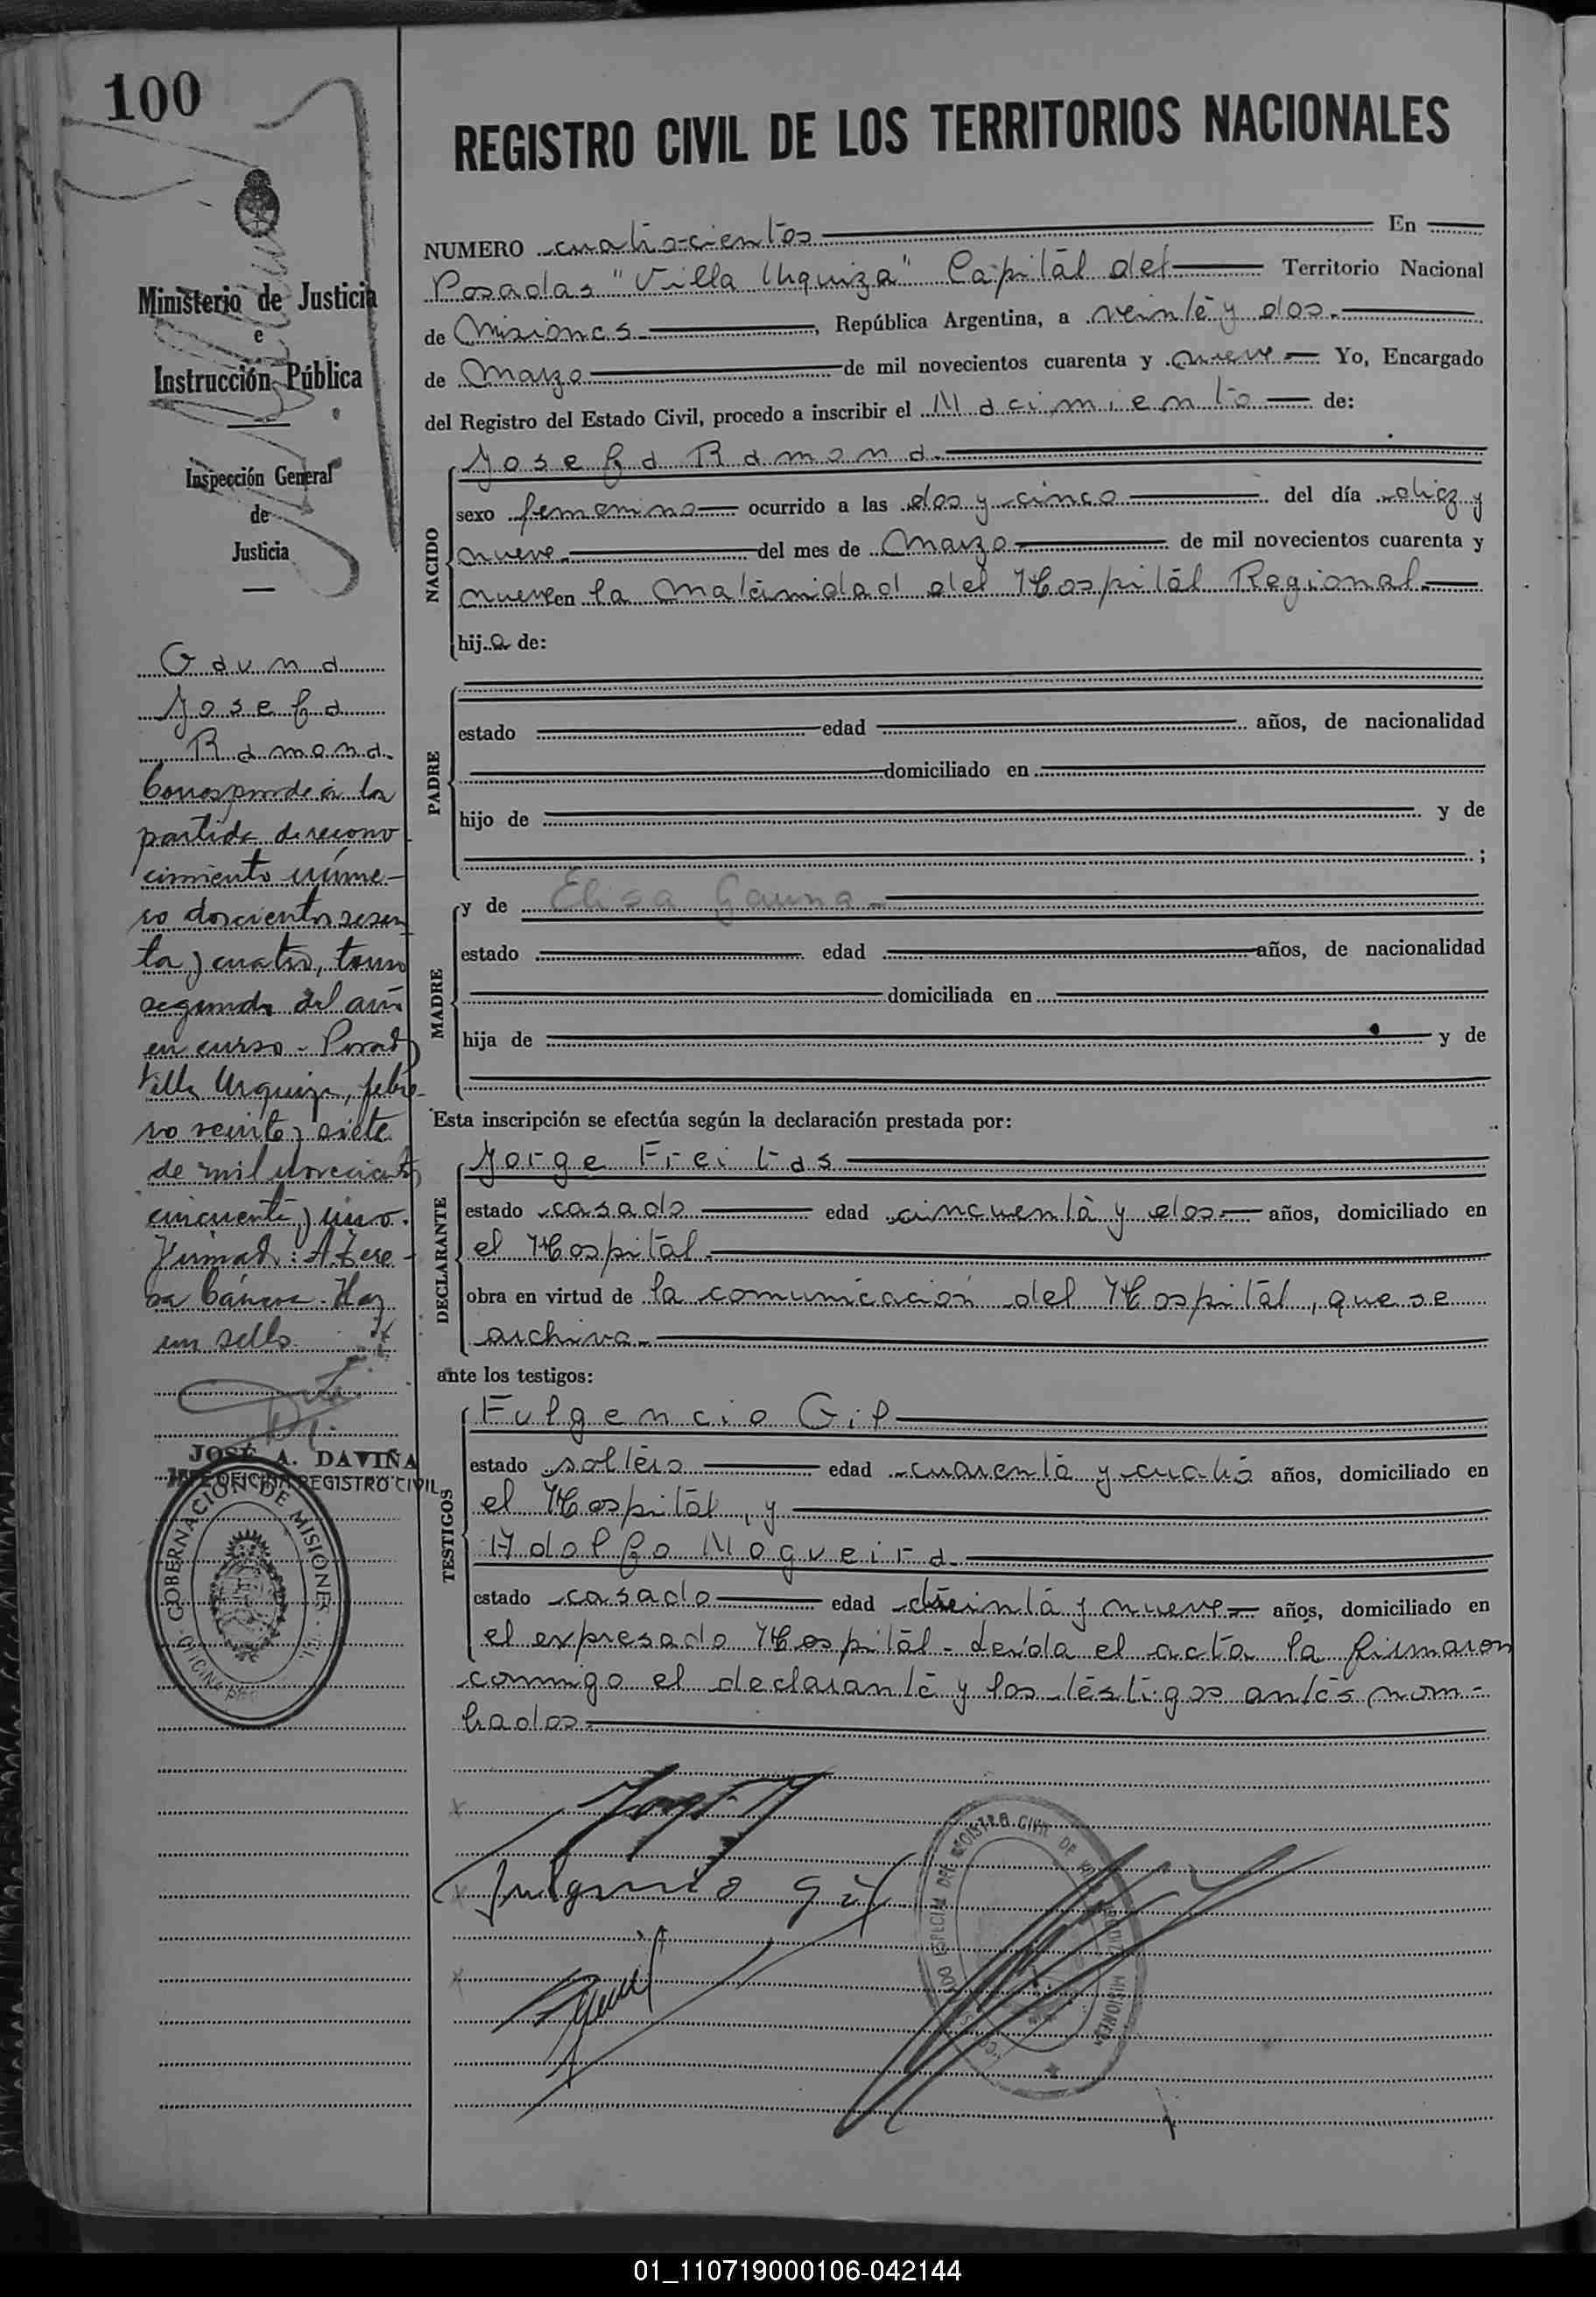 100
REGISTRO CIVIL DE LOS TERRITORIOS NACIONALES
Ministerio de Justicia
e
Instrucción Pública
Inspección General
de
Justicia
NUMERO cuatrocientos En
Posadas "Villa Urquiza" Capital del Territorio Nacional
de Misiones, República Argentina, a veinte y dos.
de Marzo de mil novecientos cuarenta y nueve Yo, Encargado
del Registro del Estado Civil, procedo a inscribir el Nacimiento de:
NACIDO
Josefa Ramona.
sexo femenino ocurrido a las dos y cinco del día diez y
nueve del mes de Marzo de mil novecientos cuarenta y
nueve en la Maternidad del Hospital Regional.
hija de:
PADRE
estado edad años, de nacionalidad
domiciliado en
hijo de y de
;
MADRE
y de Elisa Gauna
estado edad años, de nacionalidad
domiciliada en
hija de y de
Esta inscripción se efectúa según la declaración prestada por:
DECLARANTE
Jorge Freitas
estado casado edad cincuenta y dos años, domiciliado en
el Hospital.
obra en virtud de la comunicación del Hospital, que se
archiva.
ante los testigos:
TESTIGOS
Fulgencio Gil
estado soltero edad cuarenta y cuatro años, domiciliado en
el Hospital, y
Adolfo Nogueira.
estado casado edad treinta y nueve años, domiciliado en
el expresado Hospital - Leída el acta la firmaron
conmigo el declarante y los testigos antes nom-
brados.
Fulgencio Gil
Gauna
Josefa
Ramona.
Corresponde a la
partida de recono
cimiento núme-
ro doscientos sesen
ta y cuatro, tomo
segundo del año
en curso - Posad
Villa Urquiza, febre-
ro veinte y siete
de mil novecientos
cincuenta y uno.
Firmado: A. Tere-
sa Cánova. Hay
un sello.
JOSÉ A. DAVIÑA
JEFE OFICINA REGISTRO CIVIL
GOBERNACION DE MISIONES
01_110719000106-042144